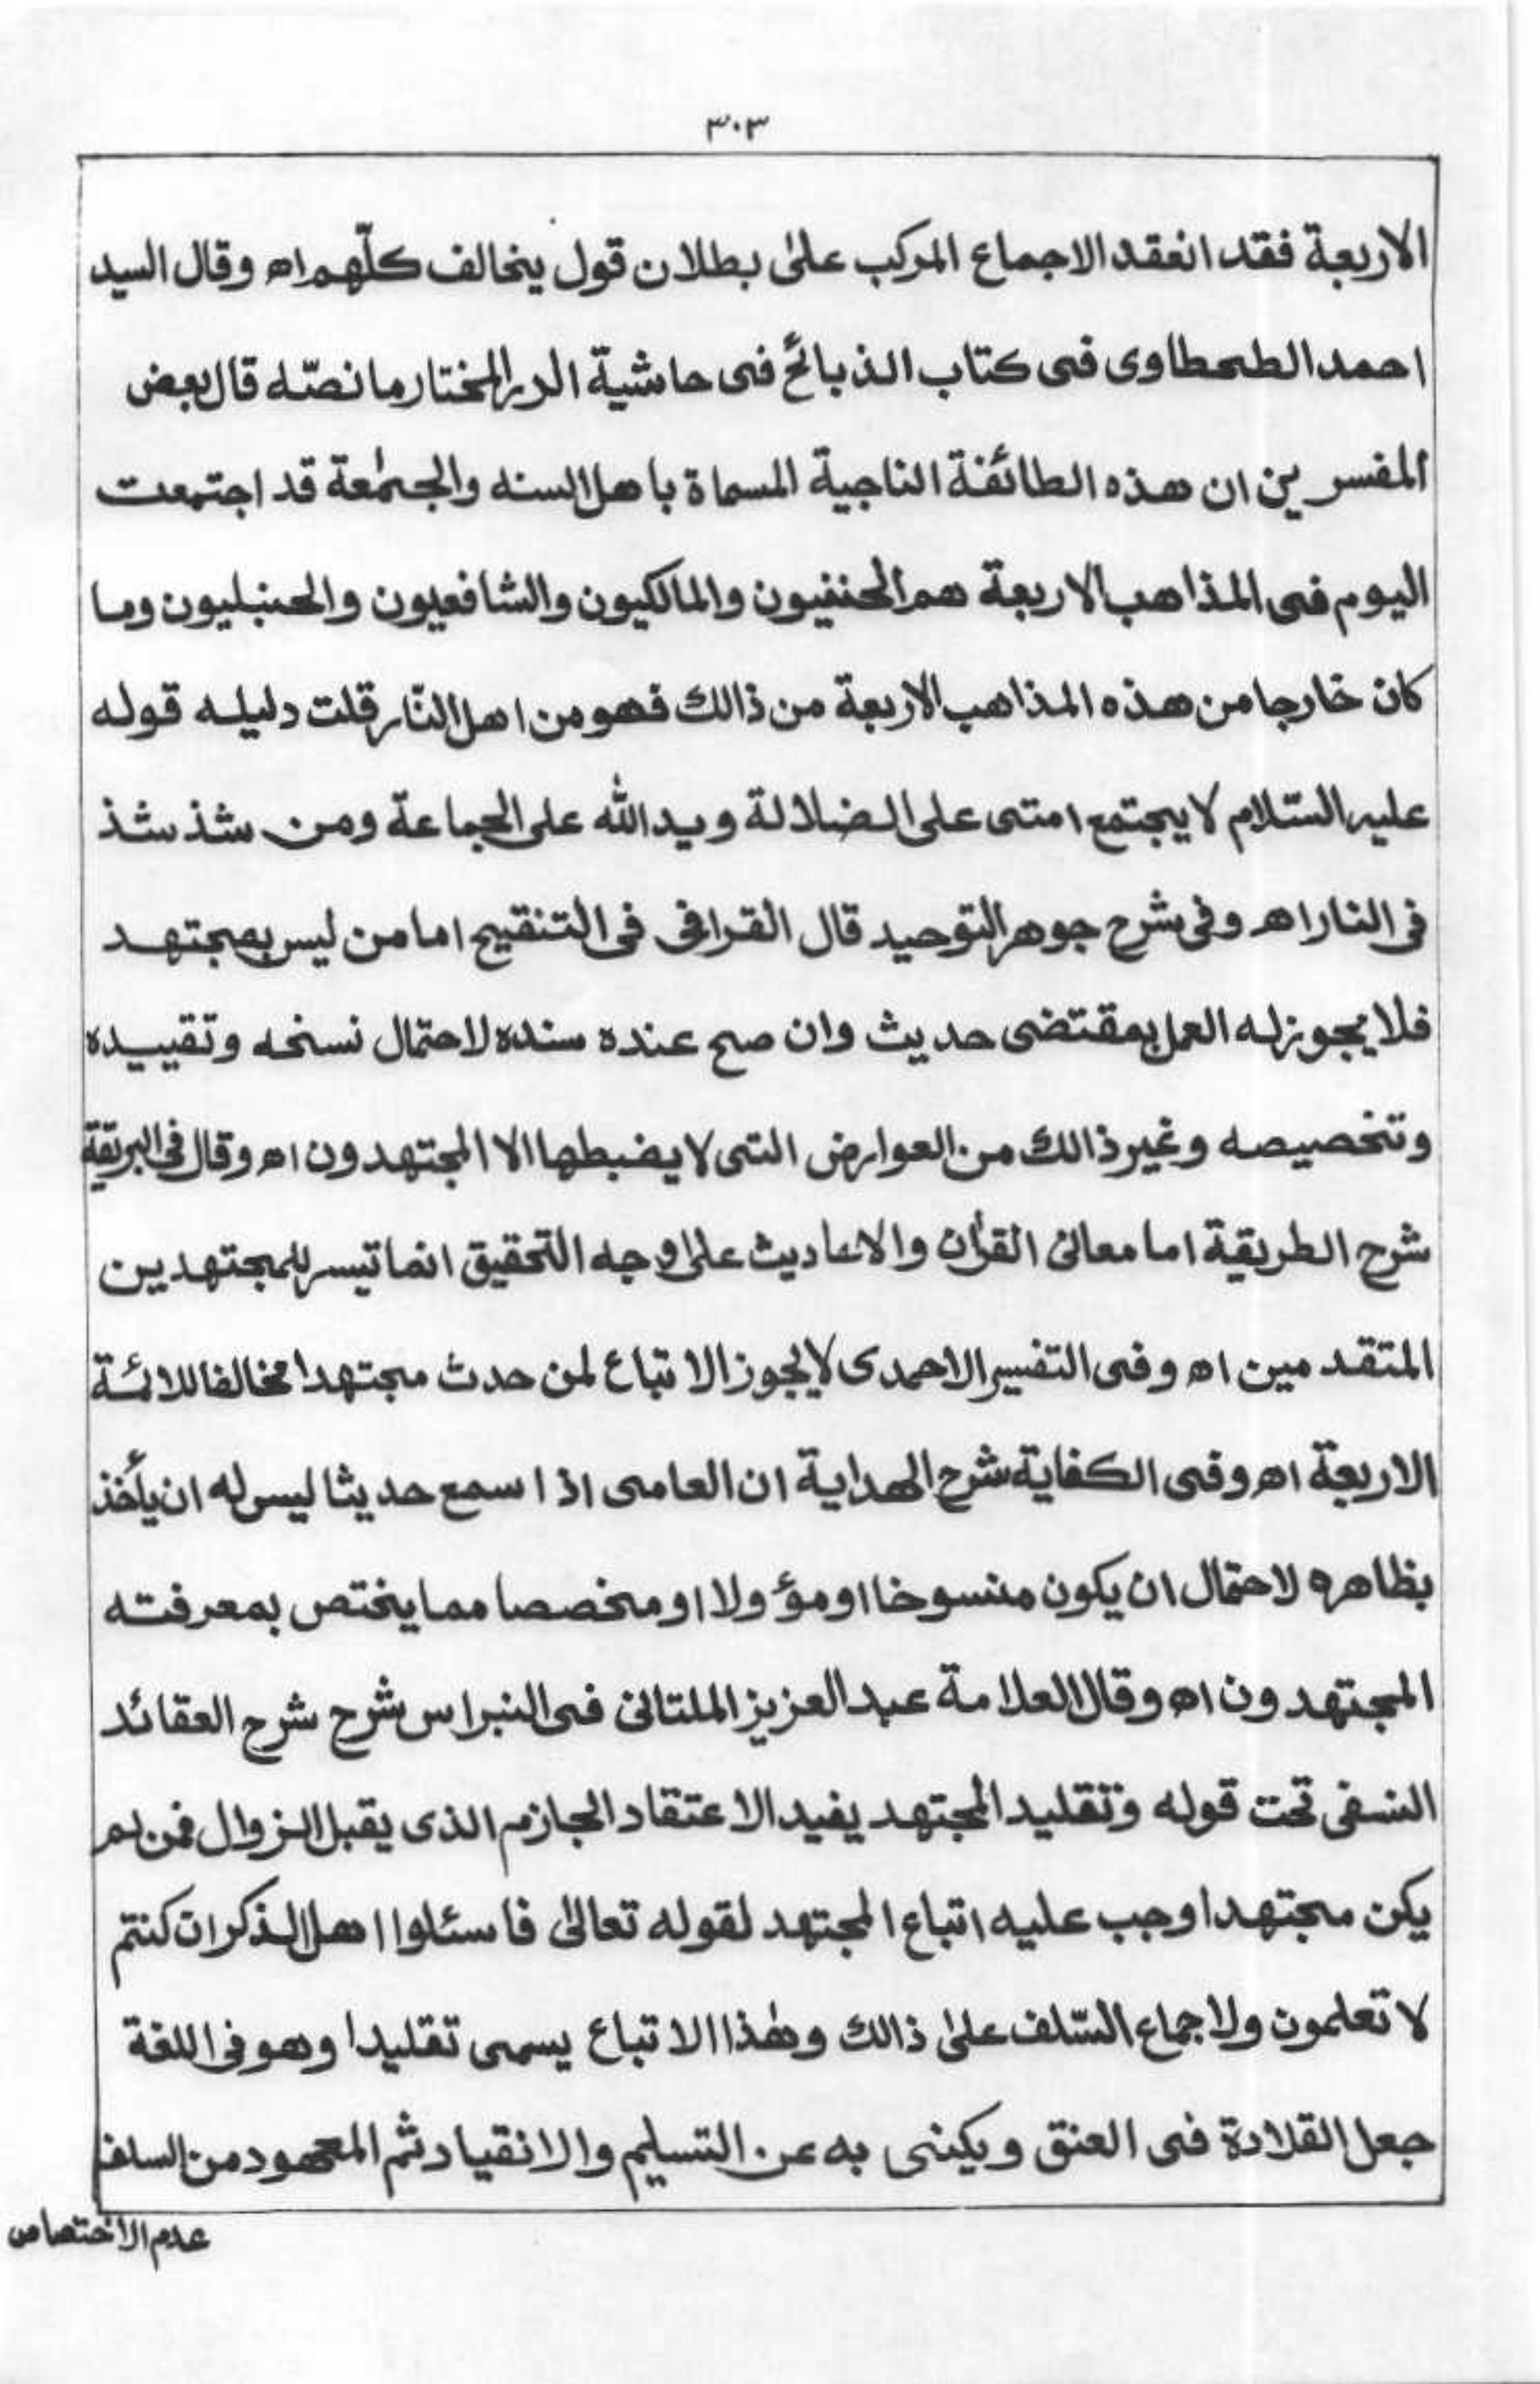 ٣٠٣
الاربعة فقد انعقد الاجماع المركب علىٰ بطلان قول يخالف كلّهم اه وقال السيد
احمد الطحطاوى فى كتاب الذبائح فى حاشية الدر المختار ما نصّه قال بعض
المفسرين ان هذه الطائفة الناجية المسماة باهل السنه والجمٰعة قد اجتمعت
اليوم فى المذاهب الاربعة هم الحنفيون والمالكيون والشافعيون والحنبليون وما
كان خارجا من هذه المذاهب الاربعة من ذالك فهو من اهل النّار قلت دليله قوله
عليه السّلام لا يجتمع امتى على الضلالة ويد الله على الجماعة ومن شذ شذ
فى النار اه وفى شرح جوهر التوحيد قال القرافى فى التنقيح اما من ليس بمجتهد
فلا يجوز له العمل بمقتضى حديث وان صح عنده سنده لاحتمال نسخه وتقييده
وتخصيصه وغير ذالك من العوارض التى لا يضبطها الا المجتهدون اه وقال فى البريقة
شرح الطريقة اما معانى القرأن والاحاديث على وجه التحقيق انما تيسر للمجتهدين
المتقدمين اه وفى التفسير الاحمدى لا يجوز الاتباع لمن حدث مجتهدا مخالفا للائمة
الاربعة اه وفى الكفاية شرح الهداية ان العامى اذا سمع حديثا ليس له ان يأخذ
بظاهره لاحتمال ان يكون منسوخا او مؤولا او مخصصا مما يختص بمعرفته
المجتهدون اه وقال العلامة عبد العزيز الملتانى فى النبراس شرح شرح العقائد
النسفى تحت قوله وتقليد المجتهد يفيد الاعتقاد الجازم الذى يقبل الزوال فمن لم
يكن مجتهدا وجب عليه اتباع المجتهد لقوله تعالىٰ فاسئلوا اهل الذكر ان كنتم
لا تعلمون ولاجماع السّلف علىٰ ذالك وهٰذا الاتباع يسمى تقليدا وهو فى اللغة
جعل القلادة فى العنق ويكنى به عن التسليم والانقياد ثم المعهود من السلف
عدم الاختصاص